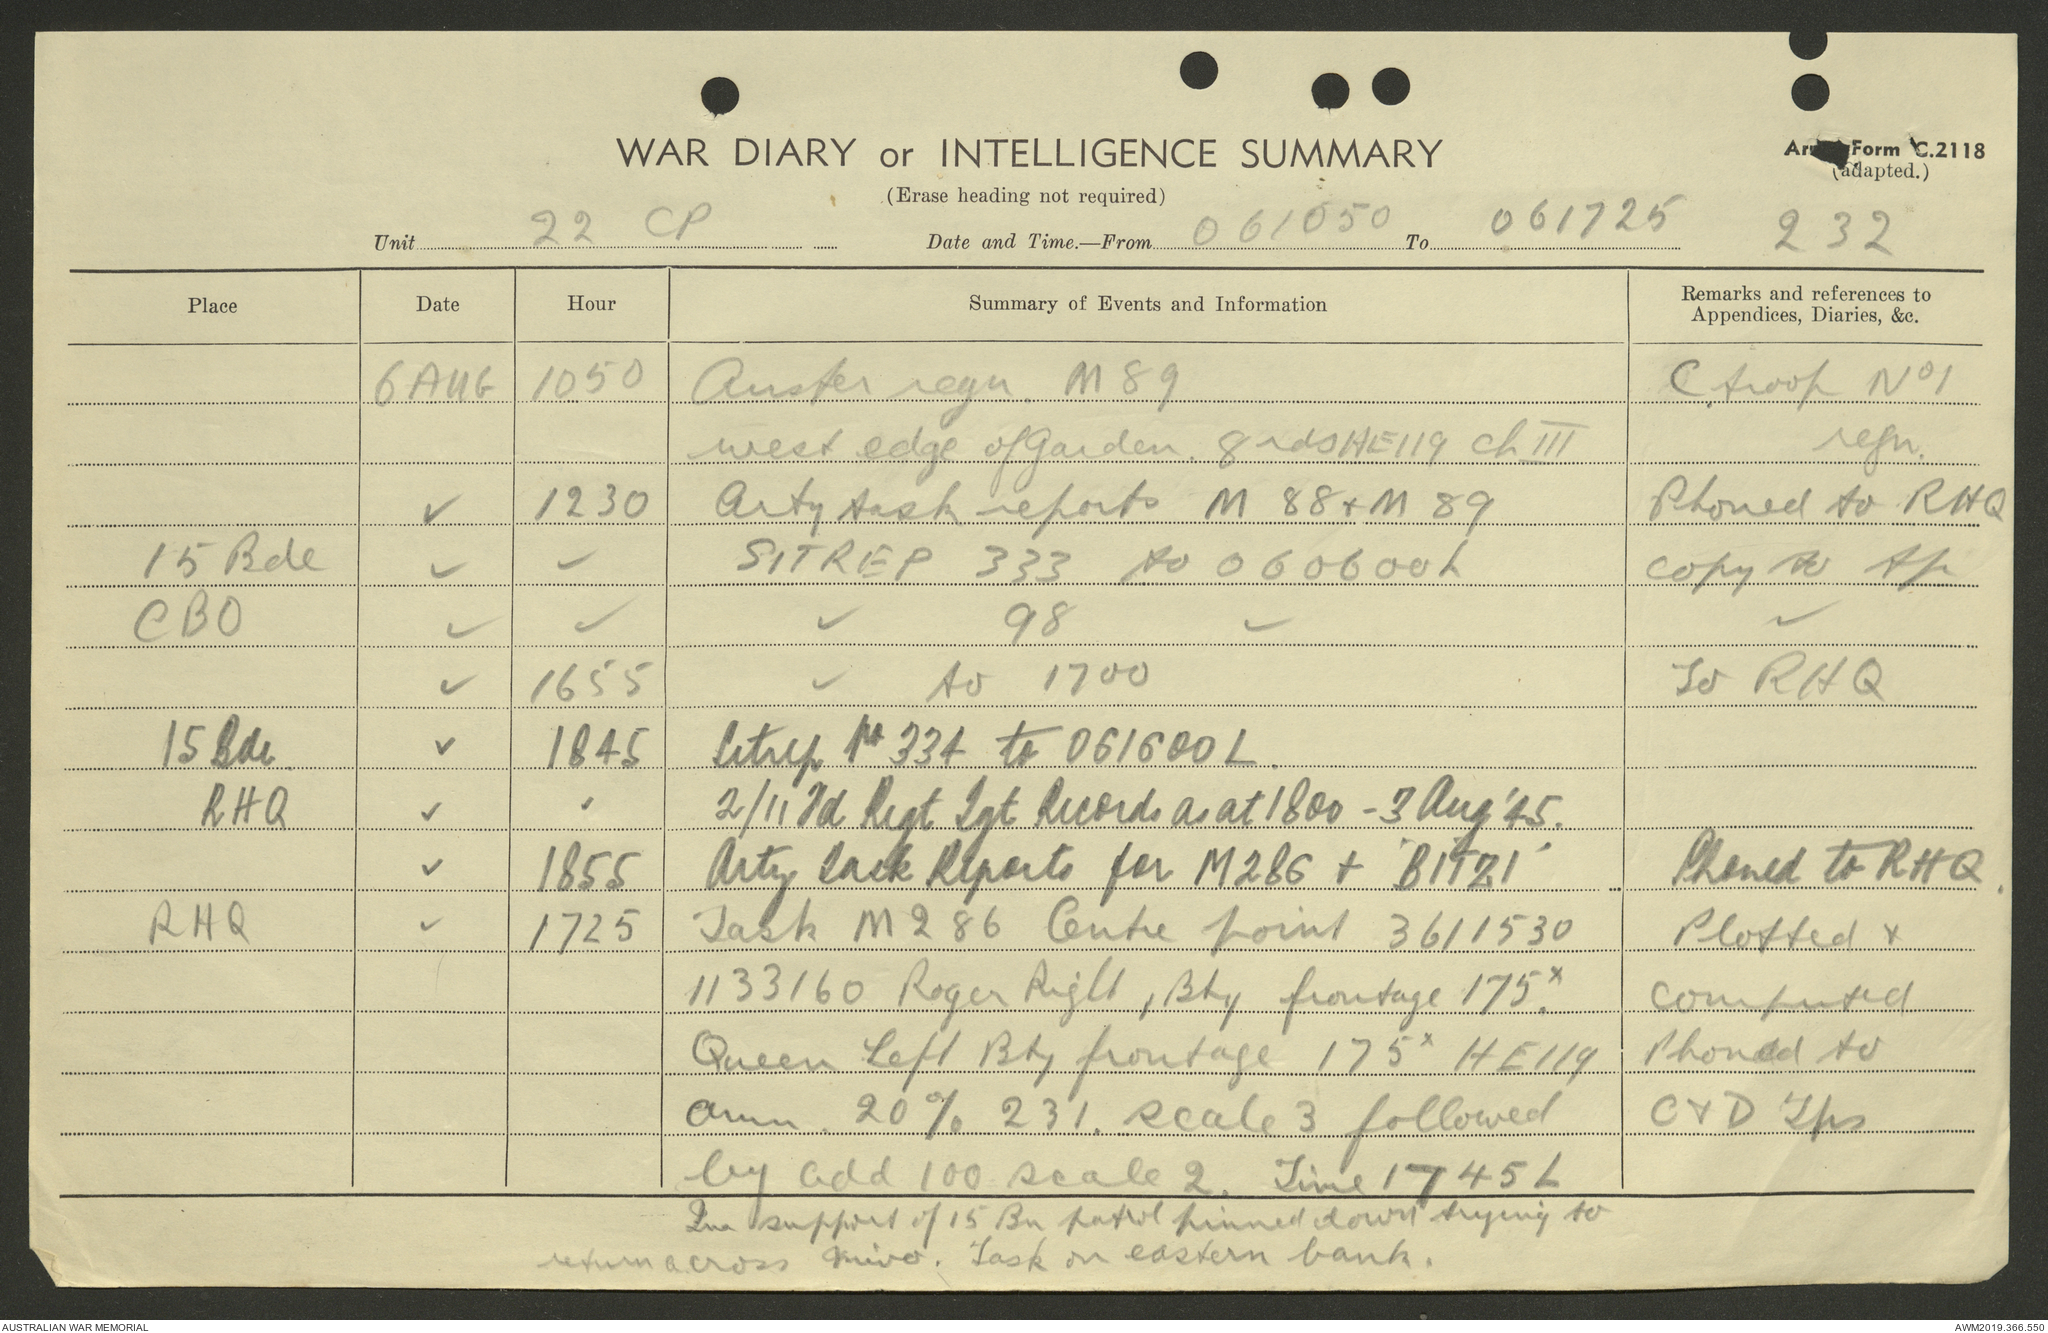 WAR DIARY or INTELLIGENCE SUMMARY
Army Form C.2118
(adapted.)
(Erase heading not required)
Unit 22 CP Date and Time.—From 061050 To 061725 232
Place Date Hour Summary of Events and Information Remarks and references to Appendices, Diaries, &c.
6 AUG 1050 Auster regn. M 89 C. troop No 1
west edge of Garden. 8 rds HE119 Ch III regn.
✓ 1230 Arty task reports M 88 + M 89 Phoned to RHQ
15 Bde ✓ ✓ SITREP 333 to 060600L copy to Tp
CBO ✓ ✓ ✓ 98 ✓ ✓
✓ 1655 ✓ to 1700 To RHQ
15 Bde. ✓ 1845 Sitrep No 334 to 061600L.
RHQ ✓ ✓ 2/11 Fd Regt Tgt Records as at 1800 - 3 Aug '45.
✓ 1855 Arty Task Reports for M286 + 'BITZI' Phoned to RHQ.
RHQ ✓ 1725 Task M286 Centre point 3611530 Plotted +
1133160 Roger Right, Bty frontage 175.x computed
Queen Left Bty frontage 175x HE119 Phoned to
amn. 20% 231. scale 3 followed C + D Tps
by add 100 scale 2. Time 1745L
In support of 15 Bn patrol pinned down trying to
return across Mivo. Task on eastern bank.
AUSTRALIAN WAR MEMORIAL
AWM2019.366.550